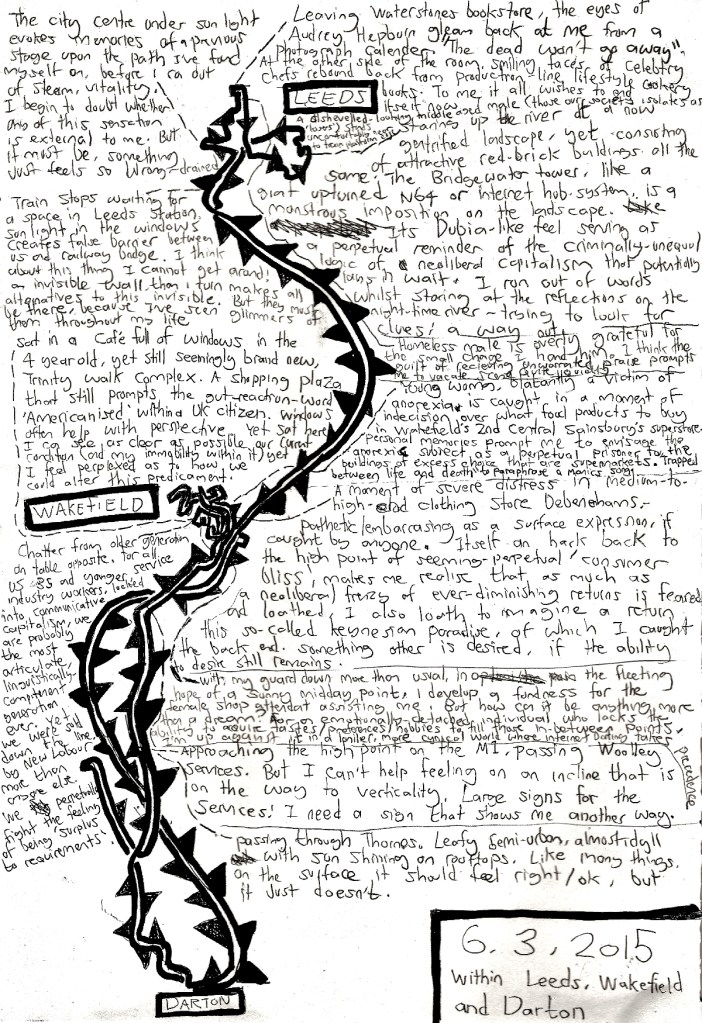 The city centre under sunlight
evokes memories of a previous
stage upon the path I've found
myself on, before I ran out
of steam, vitality.
I begin to doubt whether
any of this sensation
is external to me. But
it must be, something
just feels so wrong-drained
Leaving Waterstones bookstore, the eyes of
Audrey Hepburn gleam back at me from a
photograph calender. "The dead won't go away".
At the other side of the room, smiling faces of Celebrity
Chefs rebound back from production line lifestyle cookery
books. To me it all wishes to end
itself now
LEEDS
a dishevelled-looking middle aged male (those our society isolates as
losers)
uncomfortably
to train platform
Staring up the river at a now
gentrified landscape, yet consisting
of attractive red-brick buildings all the
same. The Bridgewater tower, like a
giant upturned N64 or internet hub-system, is a
monstrous imposition on the landscape.
Its Dubia-like feel serving as
a perpetual reminder of the criminally-unequal
logic of neoliberal capitalism that potentially
lays in wait. I run out of words
whilst staring at the reflections on the
night-time river - trying to look for
clues: a way out
Train stops waiting for
a space in Leeds Station,
sunlight in the windows
creates false barrier between
us and railway bridge. I think
about this thing I cannot get around:
an invisible wall than i turn makes all
alternatives to this invisible. But they must
be there, because I've seen glimmers of
them throughout my life
Homeless male is overly grateful for
the small change I hand him. I think the
guilt of recieving unwarrated praise prompts
me to vacate scene quite quickly
sat in a Café full of windows in the
4 year old, yet still seemingly brand new,
Trinity walk Complex. A shopping plaza
that still prompts the gut-reaction-word
'Americanised' within a UK citizen. Windows
often help with perspective. Yet sat here
I can see as clear as possible our current
condition (and my immobility within it) yet
I feel perplexed as to how we
could alter this predicament.
Young woman, blatantly a victim of
anorexia, is caught in a moment of
indecision over what food products to buy
in Wakefield's 2nd Central Sainsbury's superstore.
Personal memories prompt me to envisage the
anorexic subject as a perpetual prisoner to the
buildings of excess choice that are supermarkets. Trapped
between life and death to paraphrase a Manics song
WAKEFIELD
A moment of severe distress in medium-to-
high-end clothing Store Debenhams.
Pathetic/embarrasing as a surface expression, if
caught by anyone. Itself an hack back to
the high point of seeming-perpetual 'consumer
bliss', makes me realise that, as much as
a neoliberal frenzy of ever-diminishing returns is feared
and loathed, I also loath to imagine a return
this so-called keynesian paradise, of which I caught
the back end. something other is desired, if the ability
to desire still remains.
Chatter from older generation
on table opposite. For all
us 85 and younger, service
industry workers, locked
into communicative
capitalism, we
are probably
the most
articulate,
linguistically
compitent
generation
ever. Yet,
we were sold
down the line
by New Labour
more than
anyone else.
We perpetually
fight the feeling
of being 'surplus
to requirements'.
with my guard down more than usual, in the fleeting
hope of a sunny midday point, I develop a fondness for the
female shop attendant assisting me. But how can it be anything more
than a dream? For an emotionally-detached individual who lacks the
ability to acquire tastes/preferences/hobbies to fill those in-between points,
up against it in a lonlier, more cynical world where internet Dating takes
precedence
Approaching the high point on the M1, passing Woolley
Services. But I can't help feeling on an incline that is
on the way to verticality. Large signs for the
Services: I need a sign that shows me another way.
passing through Thornes. Leafy semi-urban, almost idyll
with sun shining on rooftops. Like many things,
on the surface it should feel right/ok, but
it just doesn't.
6.3.2015
within Leeds, Wakefield
and Darton
DARTON